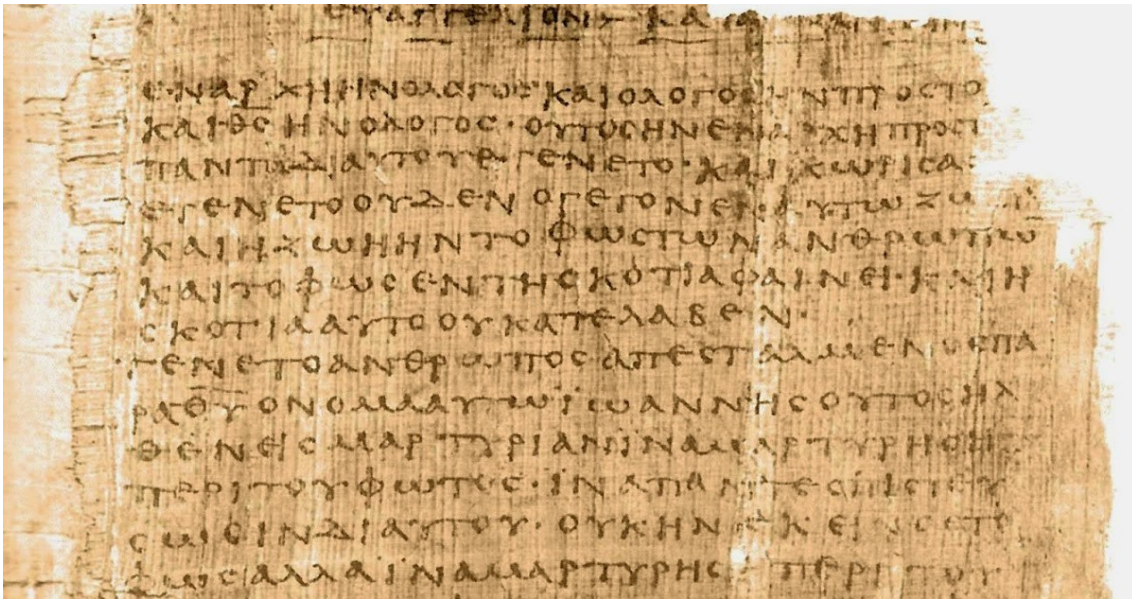 ΕΥΑΓΓΕΛΙΟΝ ΚΑΤΑ
ΕΝΑΡΧΗΗΝΟΛΟΓΟΣΚΑΙΟΛΟΓΟΣΗΝΠΡΟΣΤΟ
ΚΑΙΘΣΗΝΟΛΟΓΟΣ·ΟΥΤΟΣΗΝΕΝΑΡΧΗΠΡΟΣΤ
ΠΑΝΤΑΔΙΑΥΤΟΥΕΓΕΝΕΤΟ·ΚΑΙΧΩΡΙΣΑ
ΕΓΕΝΕΤΟΟΥΔΕΝΟΓΕΓΟΝΕΝΕΝΑΥΤΩΖΩ
ΚΑΙΗΖΩΗΗΝΤΟΦΩΣΤΩΝΑΝΘΡΩΠΩ
ΚΑΙΤΟΦΩΣΕΝΤΗΣΚΟΤΙΑΦΑΙΝΕΙ·ΚΑΙΗ
ΣΚΟΤΙΑΑΥΤΟΟΥΚΑΤΕΛΑΒΕΝ·
ΓΕΝΕΤΟΑΝΘΡΩΠΟΣΑΠΕΣΤΑΛΜΕΝΟΣΠΑ
ΡΑΘΥΟΝΟΜΑΑΥΤΩΪΩΑΝΝΗΣΟΥΤΟΣΗΛ
ΘΕΝΕΙΣΜΑΡΤΥΡΙΑΝΪΝΑΜΑΡΤΥΡΗΣΗ
ΠΕΡΙΤΟΥΦΩΤΟΣ·ΙΝΑΠΑΝΤΕΣΠΙΣΤΕΥ
ΣΩΣΙΝΔΙΑΥΤΟΥ·ΟΥΚΗΝΕΚΕΙΝΟΣΤΟ
ΦΩΣΑΛΛΑΙΝΑΜΑΡΤΥΡΗΣΗΠΕΡΙΤΟΥ